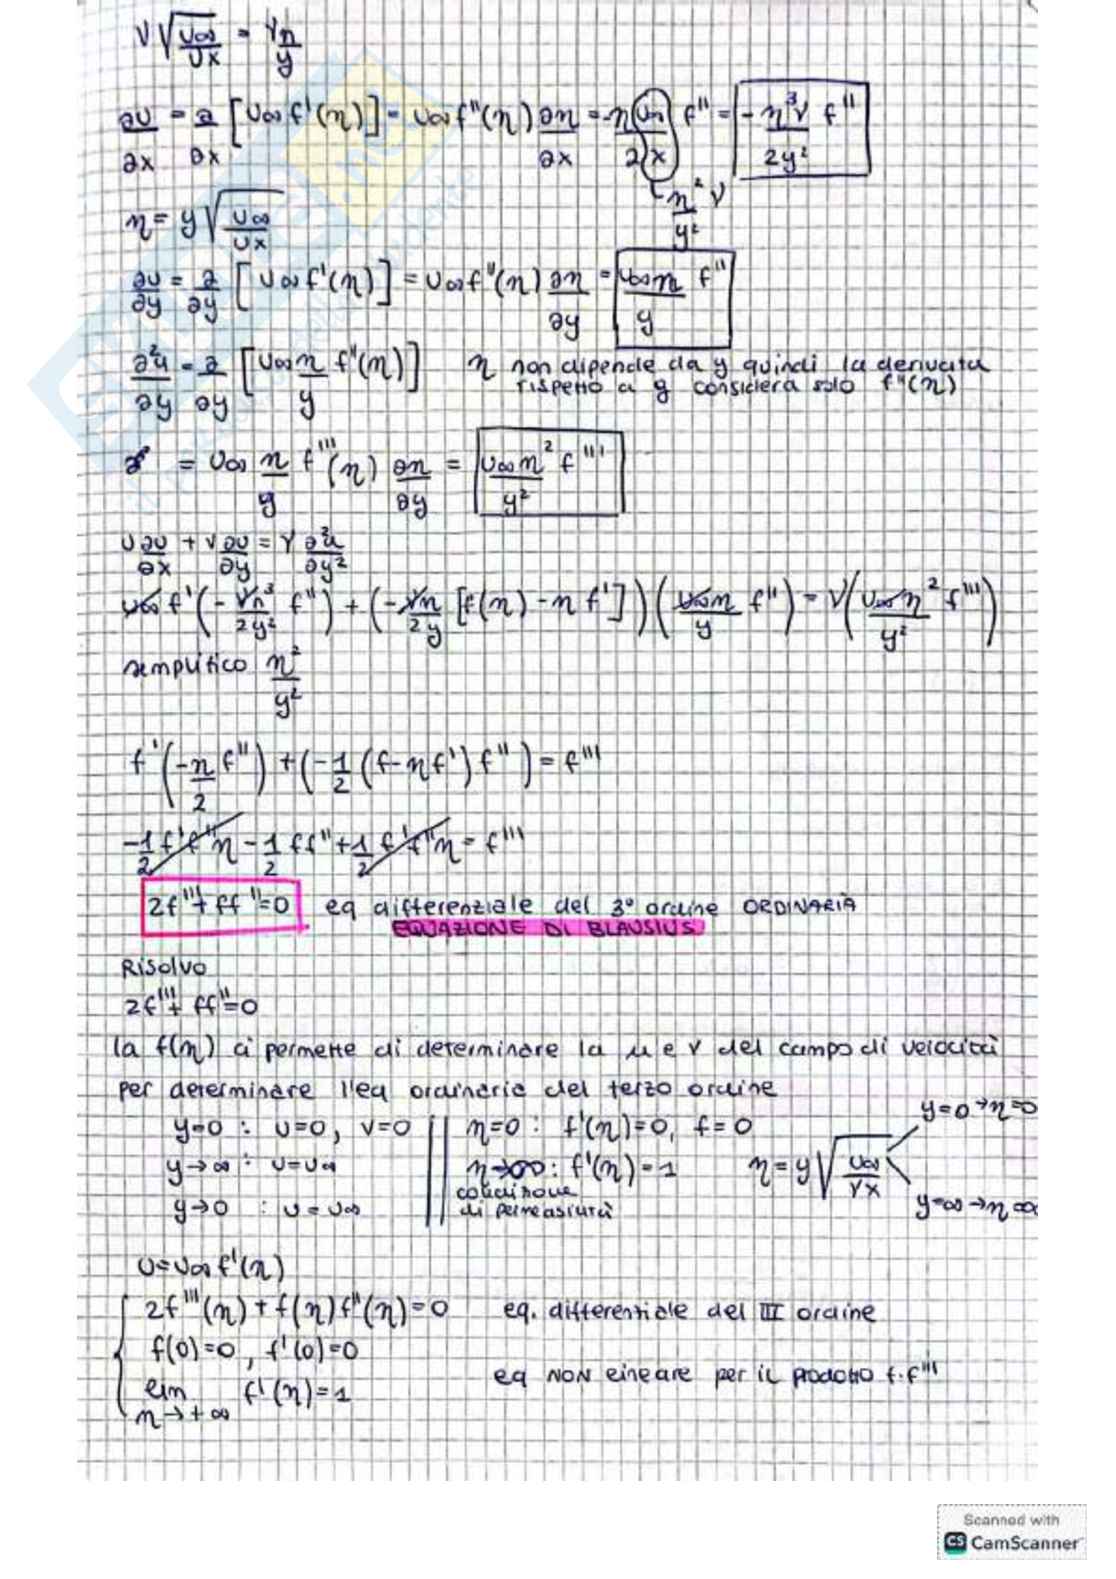 ν√(U∞/νx) = νη/y
∂u/∂x = ∂/∂x [U∞ f'(η)] = U∞ f''(η) ∂η/∂x = -η U∞/(2x) f'' = - η³ν/(2y²) f''
η² ν/y²
η = y√(U∞/νx)
∂u/∂y = ∂/∂y [U∞ f'(η)] = U∞ f''(η) ∂η/∂y = U∞η/y f''
∂²u/∂y = ∂/∂y [U∞ η/y f''(η)] η non dipende da y quindi la derivata
rispetto a y considera solo f''(η)
= U∞ η/y f'''(η) ∂η/∂y = U∞η²/y² f'''
u ∂u/∂x + v ∂u/∂y = ν ∂²u/∂y²
U∞ f' (- νη³/2y² f'') + (- νη/2y [f(η) - η f']) (U∞η/y f'') = ν (U∞η²/y² f''')
semplifico η²/y²
f' (-η/2 f'') + (-1/2 (f-ηf') f'') = f'''
-1/2 f'f''η - 1/2 ff'' + 1/2 f'f''η = f'''
2f''' + ff'' = 0 eq differenziale del 3° ordine ORDINARIA
EQUAZIONE DI BLAUSIUS
Risolvo
2f''' + ff'' = 0
la f(η) ci permette di determinare la u e v del campo di velocità
per determinare l'eq ordinaria del terzo ordine
y=0 : u=0, v=0 || η=0 : f'(η)=0, f=0 y=0→η=0
y→∞ : u=U∞ || η→∞ : f'(η)=1 η=y√(U∞/νx)
condizione
y→0 : u=U∞ || di permeabilità y=∞→η ∞
u=U∞ f'(η)
2f'''(η) + f(η)f''(η)=0 eq. differenziale del III ordine
f(0)=0, f'(0)=0
eq NON lineare per il prodotto f·f'''
lim f'(η)=1
η→+∞
Scanned with
CS CamScanner